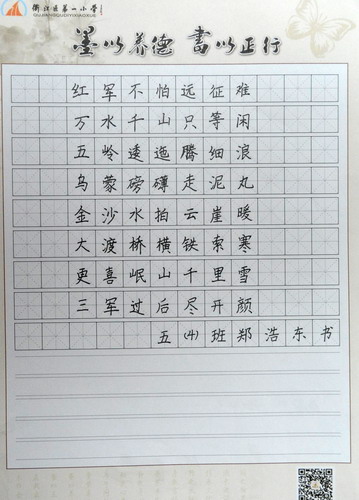 第一小学
墨以养德 書以正行
红军不怕远征难
万水千山只等闲
五岭逶迤腾细浪
乌蒙磅礴走泥丸
金沙水拍云崖暖
大渡桥横铁索寒
更喜岷山千里雪
三军过后尽开颜
五(4)班郑浩东书